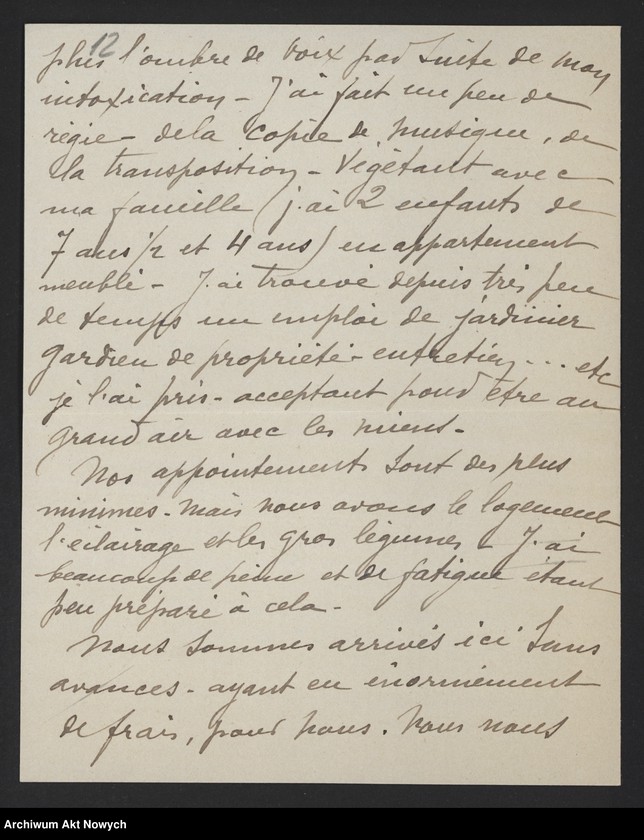 12
plus l'ombre de voix par suite de mon
intoxication - J'ai fait un peu de
régie - de la copie de musique, de
la transposition - Végétant avec
ma famille (j'ai 2 enfants de
7 ans 1/2 et 4 ans) en appartement
meublé - J'ai trouvé depuis très peu
de temps un emploi de jardinier
gardien de propriété - entretien ... etc
je l'ai pris - acceptant pour être au
grand air avec les miens -
Nos appointements sont des plus
minimes - mais nous avons le logement
l'éclairage et les gros légumes - J'ai
beaucoup de peine et de fatigue étant
peu préparé à cela -
Nous sommes arrivés ici sans
avances - ayant eu énormément
de frais, pour nous. Nous nous
Archiwum Akt Nowych